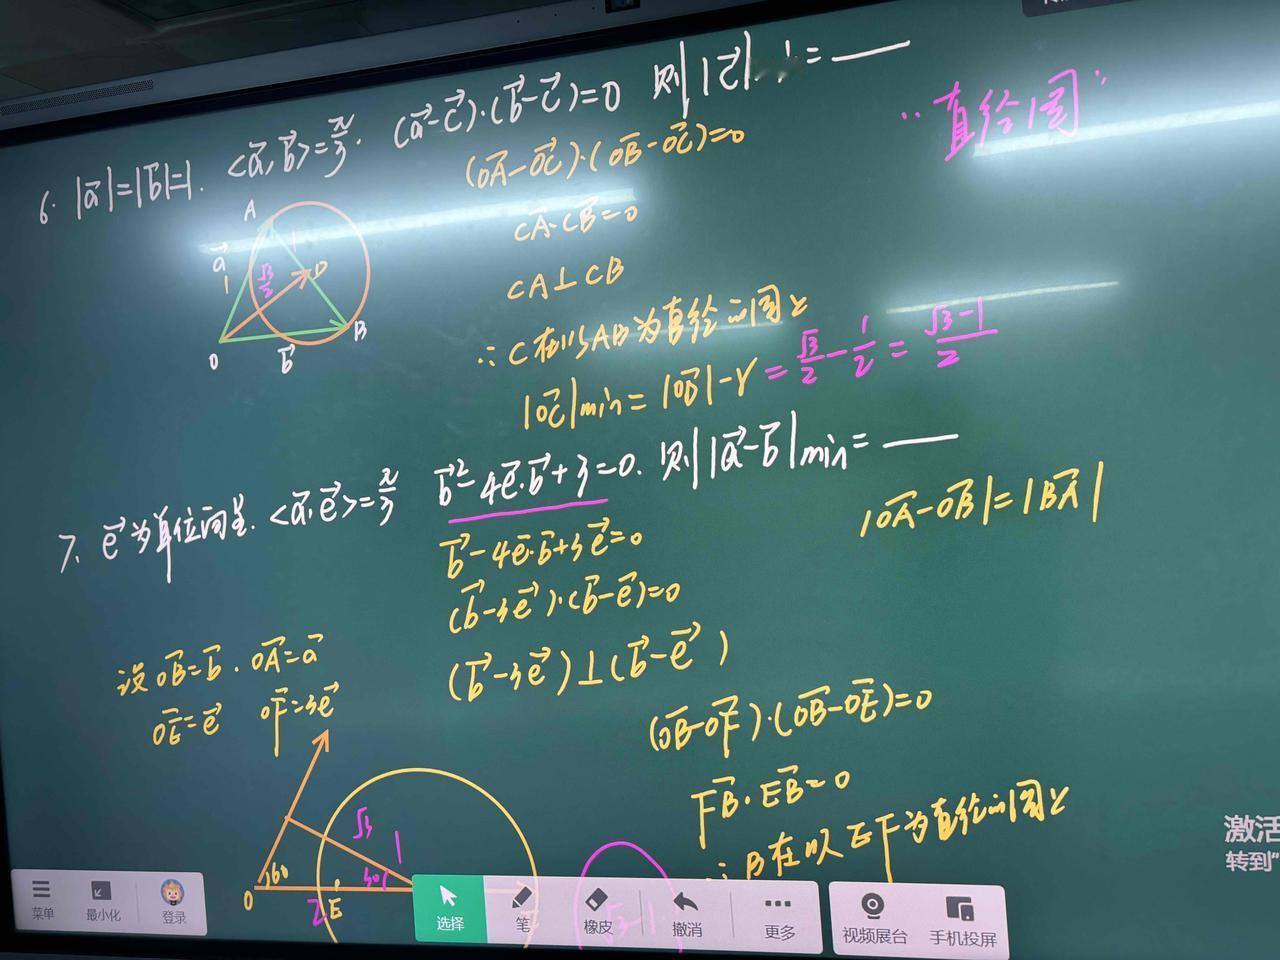 6. |a⃗|=|b⃗|=1. <a⃗,b⃗>=π/3. (a⃗-c⃗)·(b⃗-c⃗)=0 则|c⃗|
"直径圆"
(OA-OC)·(OB-OC)=0
CA·CB=0
CA⊥CB
∴C在以AB为直径的圆上
|OC|min=|OD|-r=√3/2-1/2=(√3-1)/2
A
a⃗
1
1
√3/2
D
O
b⃗
B
7. e⃗为单位向量. <a⃗,e⃗>=π/3 b⃗²-4e⃗·b⃗+3=0. 则|a⃗-b⃗|min=
|OA-OB|=|BA|
b⃗-4e·b+3e⃗=0
(b⃗-3e⃗)·(b-e)=0
(b⃗-3e⃗)⊥(b⃗-e⃗)
设OB=b. OA=a
OE=e⃗ OF=3e⃗
(OB-OF)·(OB-OE)=0
FB·EB=0
B在以EF为直径的圆上
√3
1
60
30
O
2
E
√3-1
激活
转到"
菜单
最小化
登录
选择
笔
橡皮
撤消
更多
视频展台
手机投屏